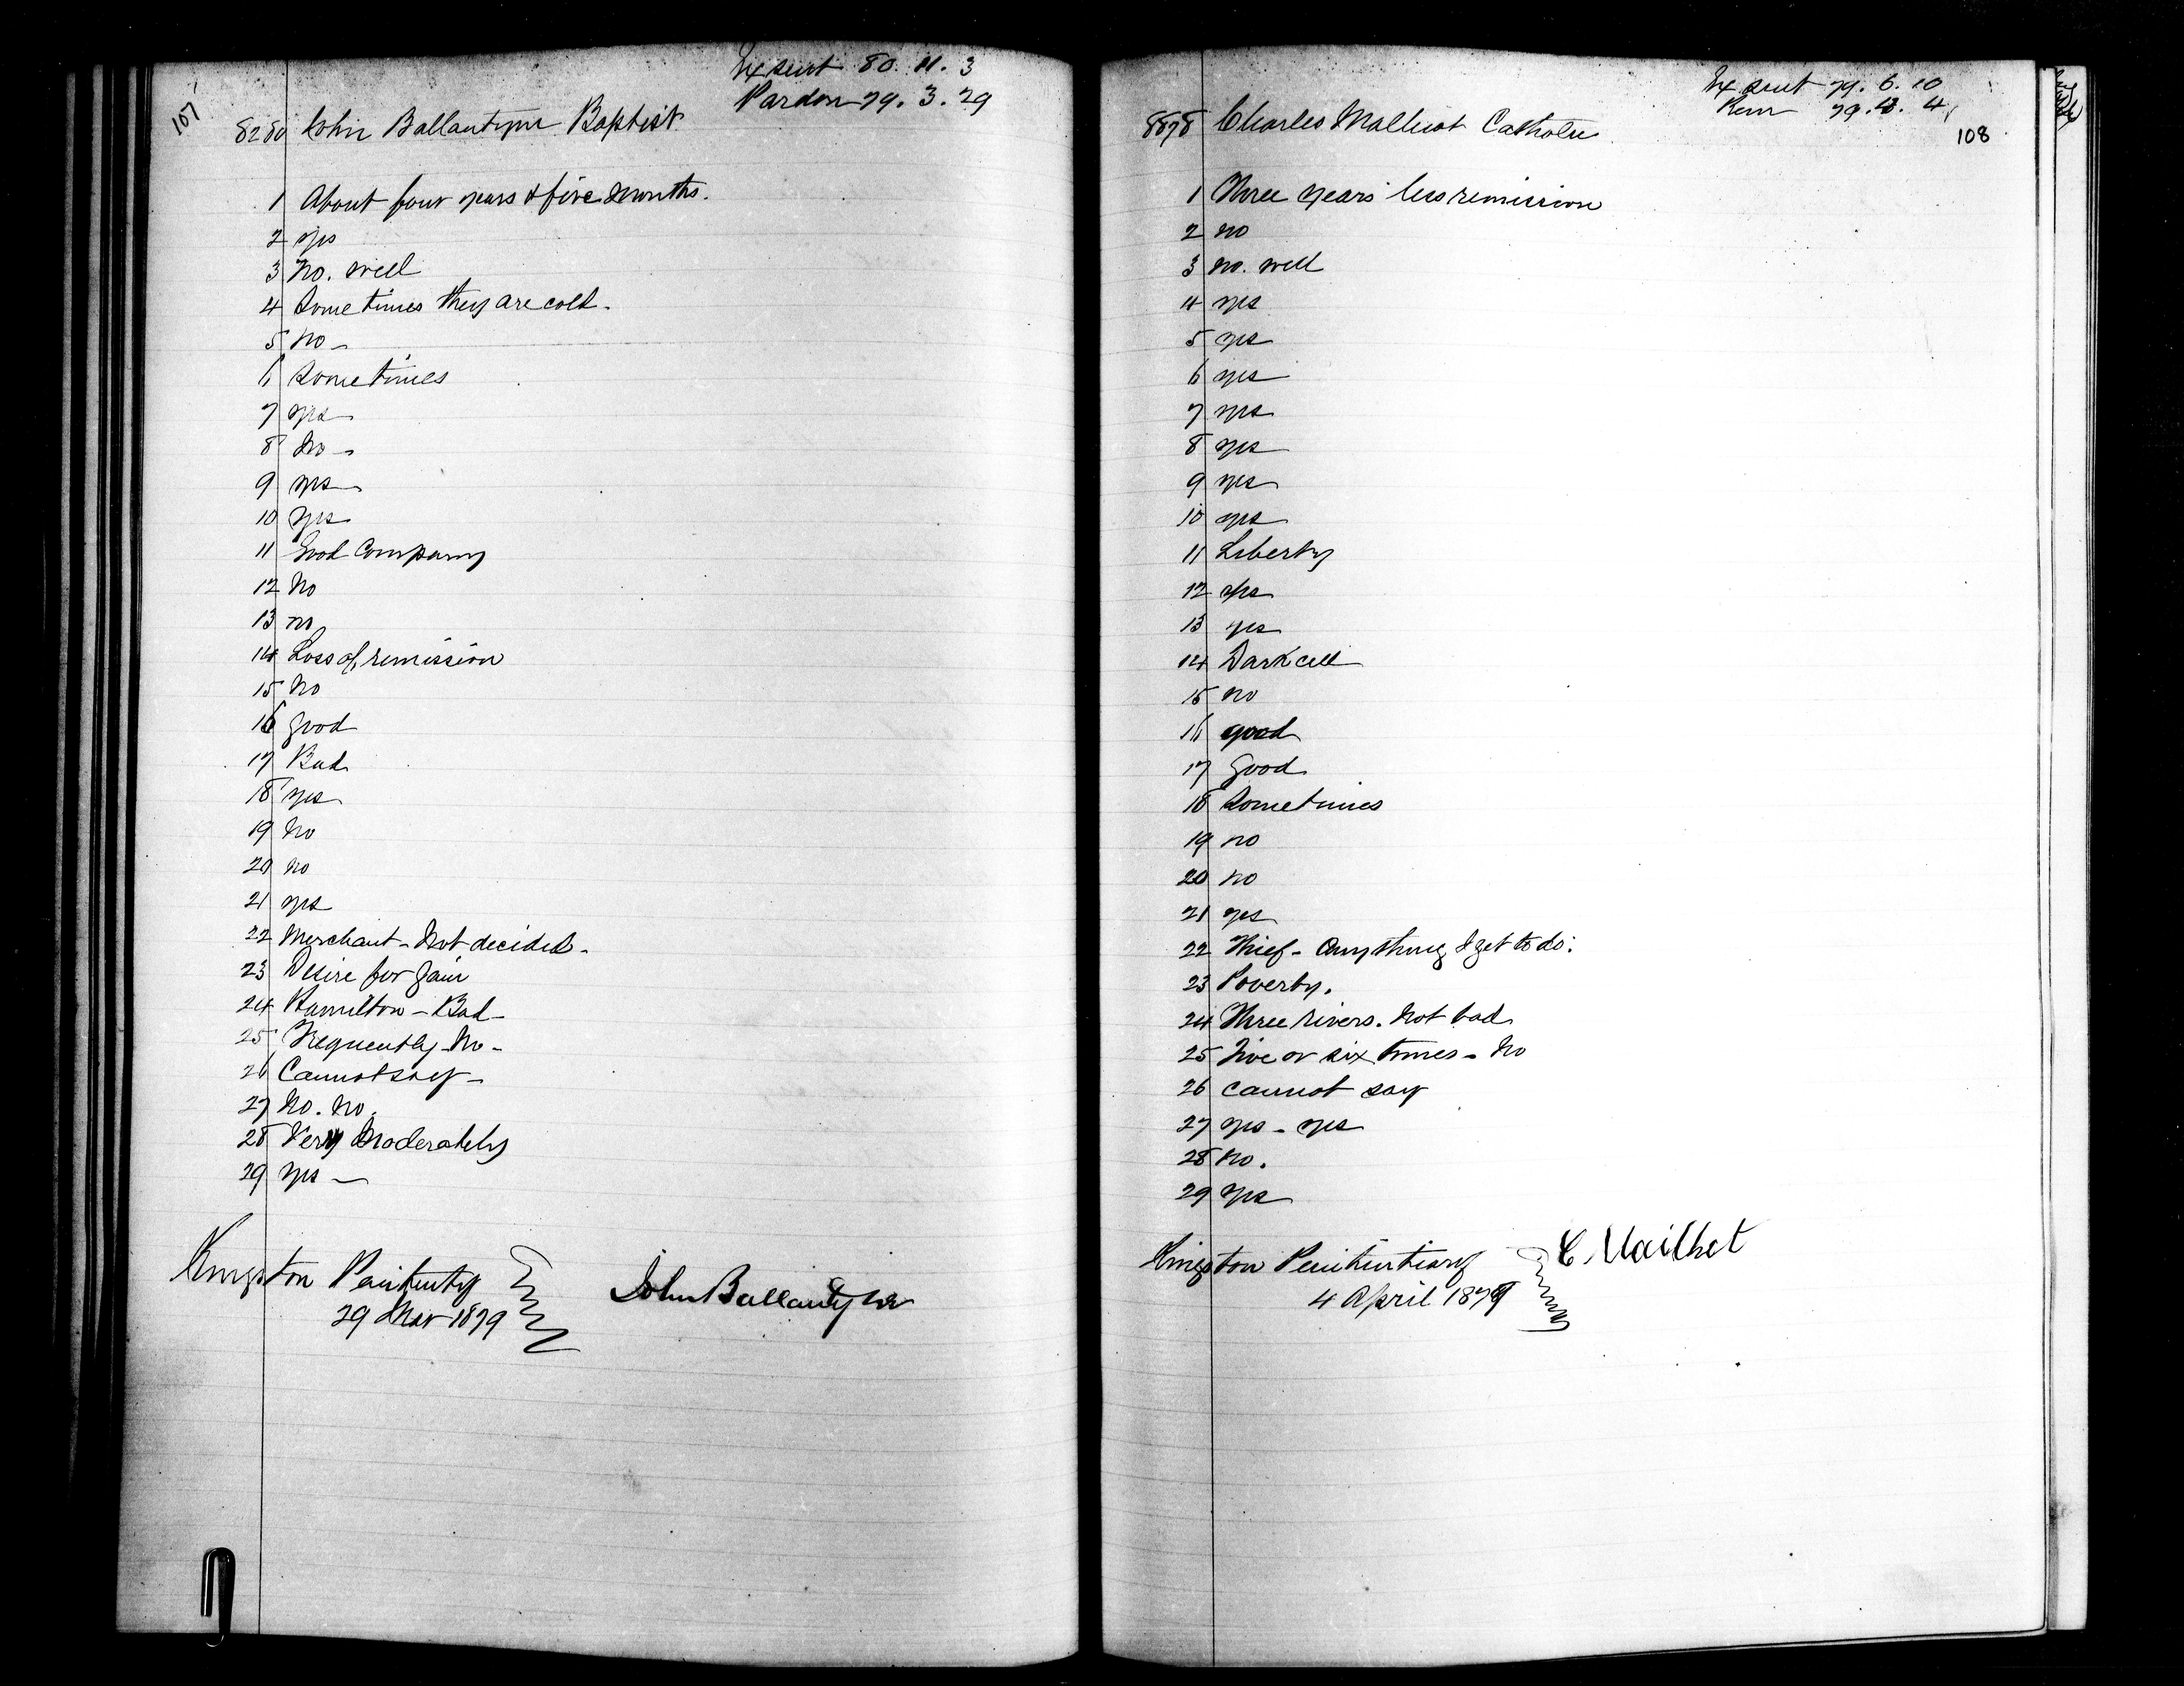 107
Ex sent 80. 11. 3
Pardon 79. 3. 29
8280 John Ballantyne Baptist.
1 About four years & five Months.
2 yes
3 No. well
4 Sometimes they are cold.
5 No -
6 Sometimes
7 yes
8 No -
9 yes
10 yes
11 Good Company
12 No
13 no
14 Loss of remission
15 No
16 good
17 Bad
18 yes
19 No
20 no
21 yes
22 Merchant - Not decided -
23 Desire for gain
24 Hamilton - Bad -
25 Frequently - No -
26 Cannot say -
27 No. No.
28 Very Moderately
29 yes -
Kingston Penitenty
29 Mar 1879
John Ballantyne
Ex sent 79. 6. 10
Rem 79. 4. 4
108
Charles Malliot Catholic
1 Three years less remission
2 no
3 no. well
4 yes
5 yes
6 yes
7 yes
8 yes
9 yes
10 yes
11 Liberty
12 yes
13 yes
14 Dark cell
15 no
16 good
17 good
18 Sometimes
19 no
20 no
21 yes
22 Thief - Anything I get to do.
23 Poverty.
24 Three rivers. Not bad
25 Five or six times - No
26 cannot say
27 yes - yes
28 no.
29 yes
Kingston Penitentiary
4 April 1879
C. Mailhet